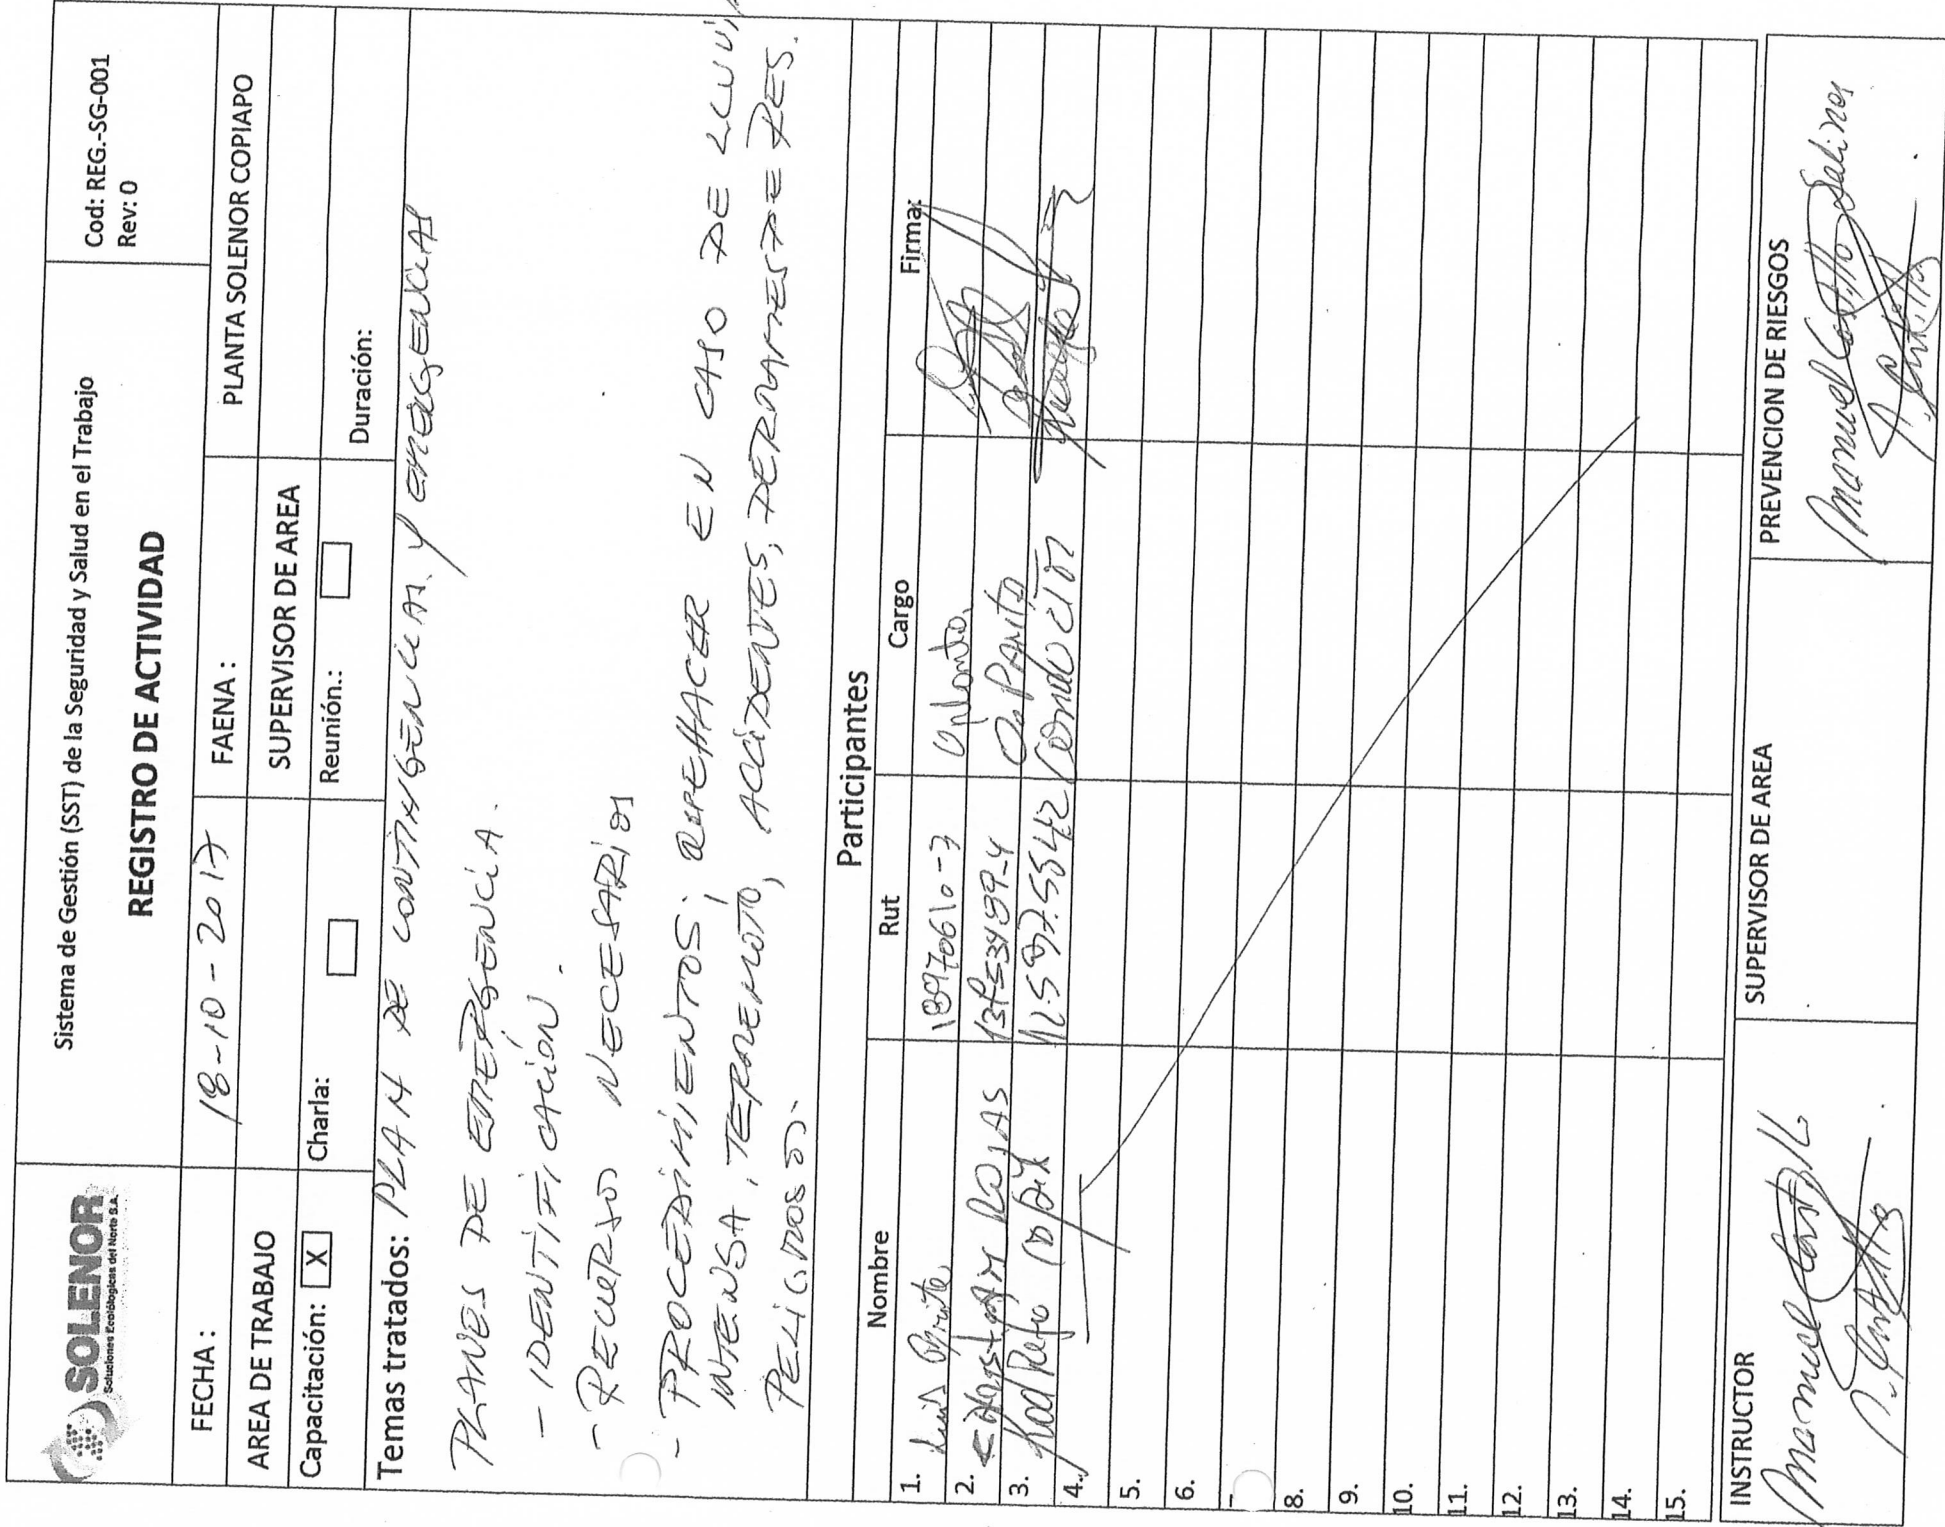 SOLENOR
Soluciones Ecológicas del Norte S.A.
Sistema de Gestión (SST) de la Seguridad y Salud en el Trabajo
REGISTRO DE ACTIVIDAD
Cod: REG.-SG-001
Rev: 0
FECHA : 18-10-2017 FAENA : PLANTA SOLENOR COPIAPO
AREA DE TRABAJO SUPERVISOR DE AREA
Capacitación: X Charla: Reunión.: Duración:
Temas tratados: PLAN DE CONTINGENCIAS. Y EMERGENCIAS
PLANES DE EMERGENCIA.
- IDENTIFICACIÓN.
- RECURSOS NECESARIOS
- PROCEDIMIENTOS; QUE HACER EN CASO DE
INTENSA, TERREMOTO, ACCIDENTES, DERRAMES DE RES.
PELIGROSOS.-
Participantes
Nombre Rut Cargo Firma:
1. Luis 18970610-3
2. ROJAS
3. 12.597.554 Conductor
4.
5.
6.
7
8.
9.
10.
11.
12.
13.
14.
15.
INSTRUCTOR SUPERVISOR DE AREA PREVENCION DE RIESGOS
Manuel Castillo Manuel Castillo Salinas